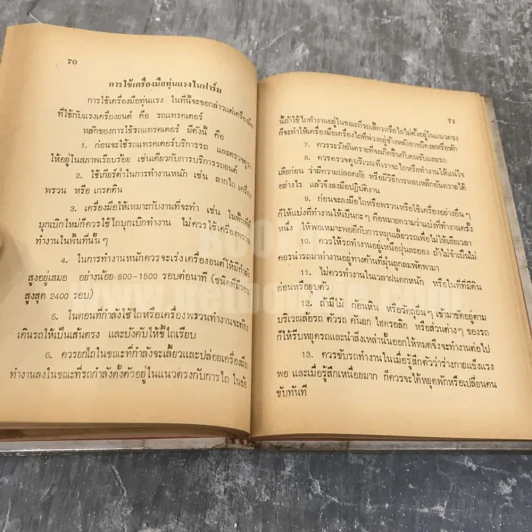 70
การใช้เครื่องมือทุ่นแรงในฟาร์ม
การใช้เครื่องมือทุ่นแรง ในที่นี้จะขอกล่าวแต่เครื่องมือ
ที่ใช้กับแรงเครื่องยนต์ คือ รถแทรคเตอร์
หลักของการใช้รถแทรคเตอร์ มีดังนี้ คือ
1. ก่อนจะใช้รถแทรคเตอร์บริการรถ และตรวจดู
ให้อยู่ในสภาพเรียบร้อย เช่นเดียวกับการบริการรถยนต์
2. ใช้เกียร์ต่ำในการทำงานหนัก เช่น ลากไถ เครื่อง
พรวน หรือ เกรดดิน
3. เครื่องมือให้เหมาะกับงานที่จะทำ เช่น ในพื้นที่
บุกเบิกใหม่ก็ควรใช้ไถบุกเบิกทำงาน ไม่ควรใช้เครื่อง
ทำงานในพื้นที่นั้น ๆ
4. ในการทำงานหนักควรจะเร่งเครื่องยนต์ให้มีกำลัง
สูงอยู่เสมอ อย่างน้อย 800-1500 รอบต่อนาที (ชนิดที่มี
สูงสุด 2400 รอบ)
5. ในตอนที่กำลังใช้ไถหรือเครื่องพรวนทำงานจะต้อง
เดินรถให้เป็นเส้นตรง และบังคับให้ขี้ไถเรียบ
6. ควรยกไถในขณะที่กำลังจะเลี้ยวและปล่อยเครื่องมือ
ทำงานลงในขณะที่รถกำลังตั้งตัวอยู่ในแนวตรงกับการไถ ในข้อ
71
นี้ถ้าใช้ไถทำงานอยู่ในขณะที่รถเลี้ยวหรือไถไม่ตั้งอยู่ในแนวตรง
ก็จะทำให้เครื่องมือเครื่องไถที่พ่วงอยู่ข้างหลังอาจบิดงอหรือหัก
7. ควรระวังอันตรายที่จะเกิดขึ้นกับคนขับและรถ
8. ควรตรวจดูบริเวณที่เราจะไถหรือทำงานให้แน่ใจ
เสียก่อน ว่ามีความปลอดภัย หรือมีวิธีการหลบหลีกอันตรายได้
อย่างไร แล้วจึงลงมือปฏิบัติงาน
9. ก่อนจะลงมือไถหรือพรวนหรือใช้เครื่องอย่างอื่น ๆ
ก็ให้แบ่งที่ทำงานให้เป็นกะ ๆ คือหมายความว่าแบ่งที่ทำงานครั้ง
หนึ่ง ให้พอเหมาะพอดีกับการหมุนเลี้ยวรถเพื่อไม่ให้เสียเวลา
10. ควรให้รถทำงานอยู่เหนือฝุ่นละออง ถ้าไม่จำเป็นไม่
ควรนำรถมาทำงานอยู่ทางด้านที่ฝุ่นถูกลมพัดพามา
11. ไม่ควรทำงานในเวลาฝนตกหนัก หรือในที่ที่มีดิน
อ่อนหรือยุบตัว
12. ถ้ามีไม้ ก้อนหิน หรือวัตถุอื่นๆ เข้ามาขัดอยู่ตาม
บริเวณล้อรถ ตัวรถ คันยก ไฮดรอลิก หรือส่วนต่างๆ ของรถ
ก็ให้รีบหยุดรถและนำสิ่งเหล่านั้นออกให้หมดจึงจะทำงานต่อไป
13. ควรขับรถทำงานในเมื่อรู้สึกตัวว่าร่างกายแข็งแรง
พอ และเมื่อรู้สึกเหนื่อยมาก ก็ควรจะได้หยุดพักหรือเปลี่ยนคน
ขับทันที